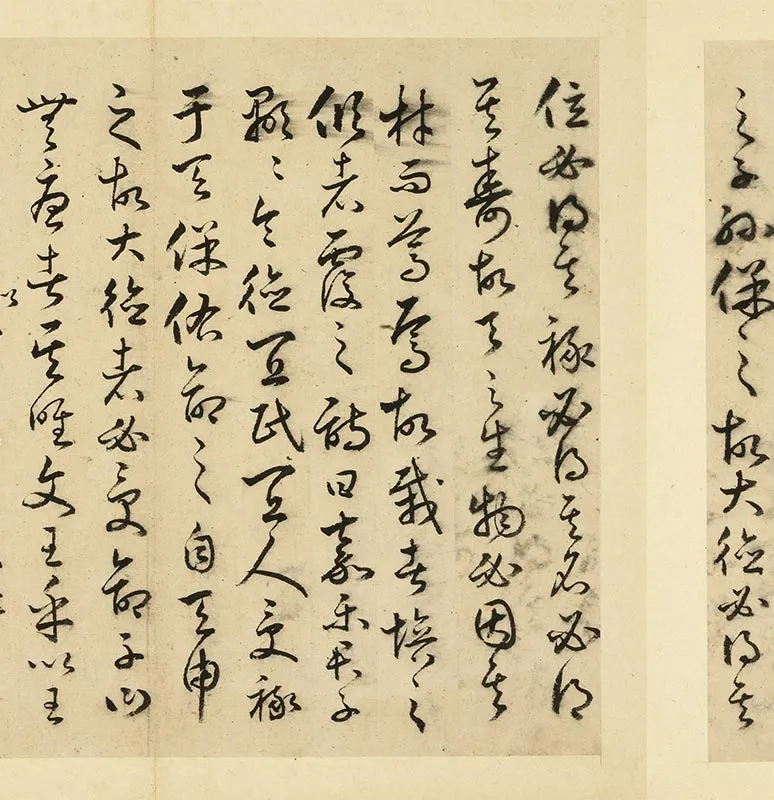 之子孫保之故大德必得其
位必得其祿必得其名必得
其壽故天之生物必因其
材而篤焉故栽者培之
傾者覆之詩曰嘉樂君子
顯〻令德宜民宜人受祿
于天保佑命之自天申
之故大德者必受命子曰
無憂者其唯文王乎以王